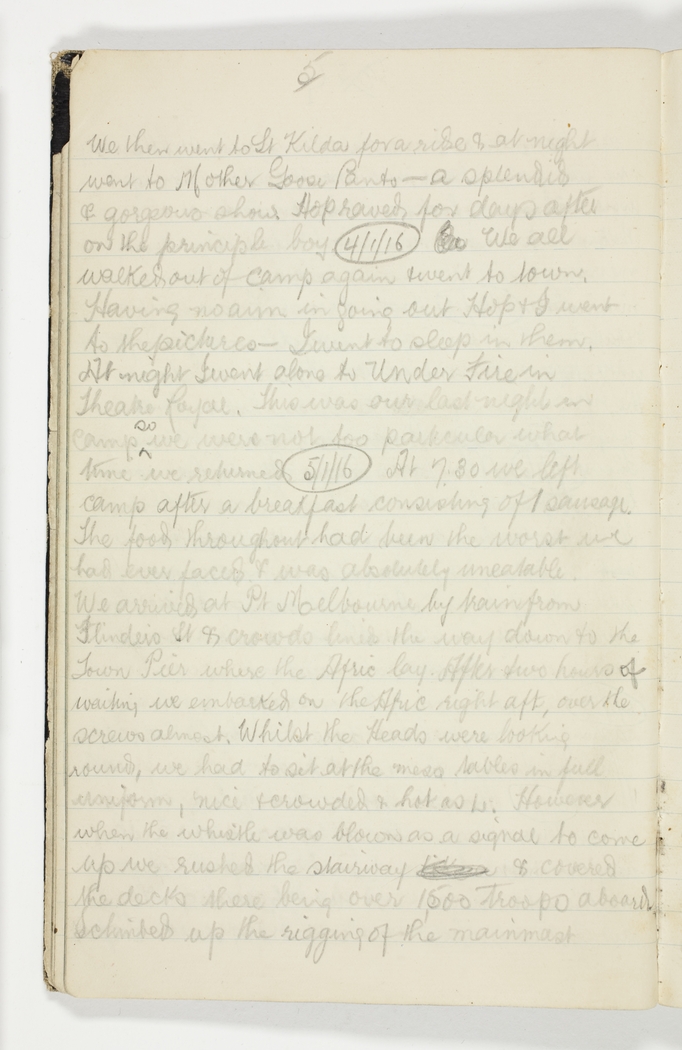 5
We then went to St Kilda for a ride & at night
went to Mother Goose Panto — a splendid
& gorgeous show. Hop raved for days after
on the principle boy 4/1/16 We all
walked out of camp again & went to town.
Having no aim in going out Hop & I went
to the pictures — I went to sleep in them.
At night I went alone to Under Fire in
Theatre Royal. This was our last night in
camp so we were not too particular what
time we returned 5/1/16 At 7.30 we left
camp after a breakfast consisting of 1 sausage.
The food throughout had been the worst we
had ever faced & was absolutely uneatable.
We arrived at Pt Melbourne by train from
Flinders St & crowds lined the way down to the
Town Pier where the Afric lay. After two hours of
waiting we embarked on the Afric right aft, over the
screws almost. Whilst the Heads were looking
round, we had to sit at the mess tables in full
uniform, nice & crowded & hot as L. However
when the whistle was blown as a signal to come
up we rushed the stairway & covered
the decks there being over 1,500 Troops aboard
I climbed up the rigging of the mainmast